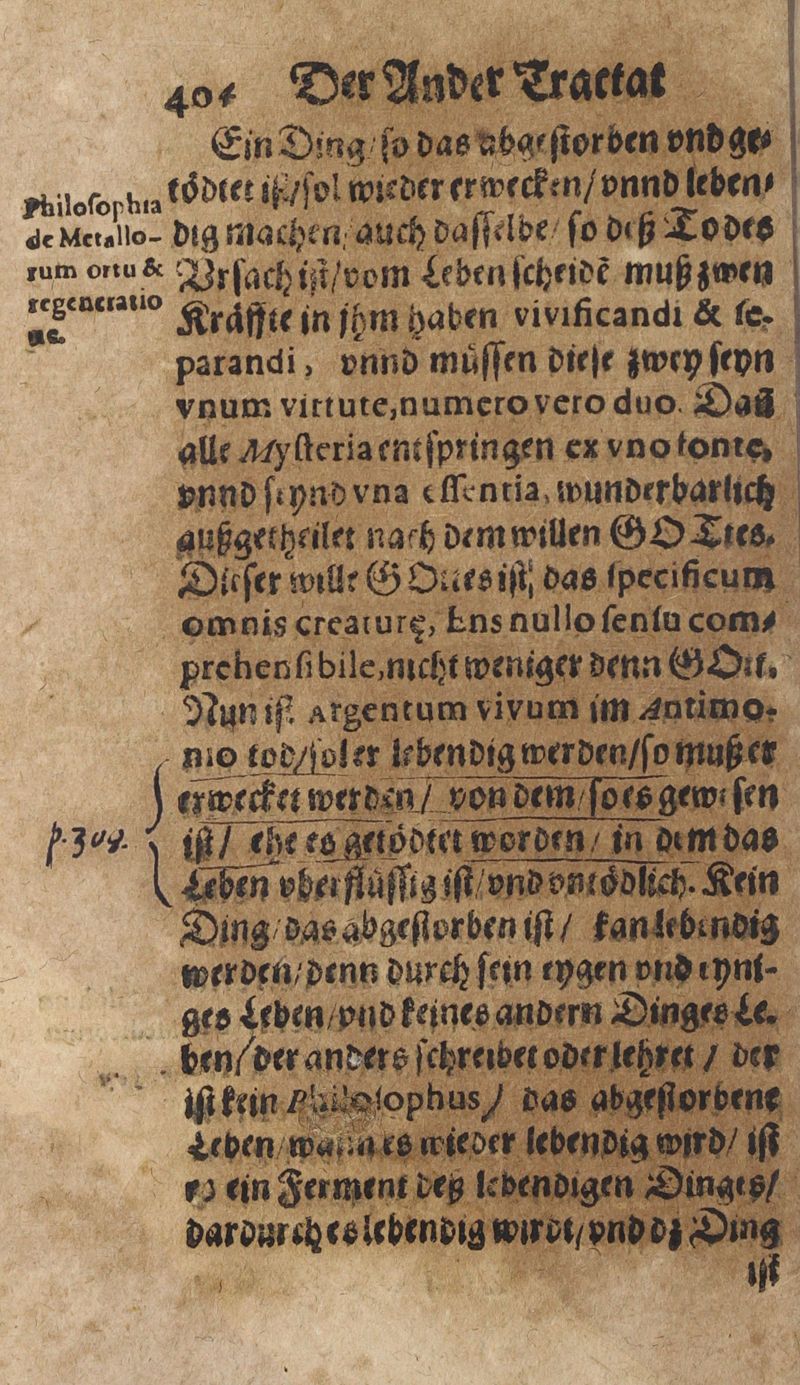 404 Der Ander Tractat
Ein Ding/ so das abgestorben vnd ge⸗
tödtet ist/ sol wieder erwecken/ vnnd leben⸗
dig machen/ auch dasselbe/ so deß Todes
Vrsach ist/ vom Leben scheidē muß zwen
Kräffte in jhm haben vivificandi & se-
parandi, vnnd müssen diese zwey seyn
vnum virtute, numero vero duo. Dañ
alle Mysteria entspringen ex vno fonte,
vnnd seynd vna essentia, wunderbarlich
außgetheilet nach dem willen GOTtes.
Dieser wille GOttes ist, das specificum
omnis creaturę, Ens nullo sensu com⸗
prehensibile, nicht weniger denn GOtt.
Nun ist Argentum vivum im Antimo-
nio tod/ sol er lebendig werden/ so muß er
erwecket werden/ von dem/ so es gewesen
ist/ ehe es getödtet worden/ in dem das
Leben vberflüssig ist/ vnd vntödlich. Kein
Ding/ das abgestorben ist/ kan lebendig
werden/ denn durch sein eygen vnd eyni-
ges Leben/ vnd keines andern Dinges Le-
ben/ der anders schreibet oder lehret/ der
ist kein Philosophus/ das abgestorbene
Leben/ wañ es wieder lebendig wird/ ist
es ein Ferment deß lebendigen Dinges/
dardurch es lebendig wirdt/ vnd dz Ding
ist
Philosophia
de Metallo-
rum ortu &
regeneratio
ne.
p. 309.